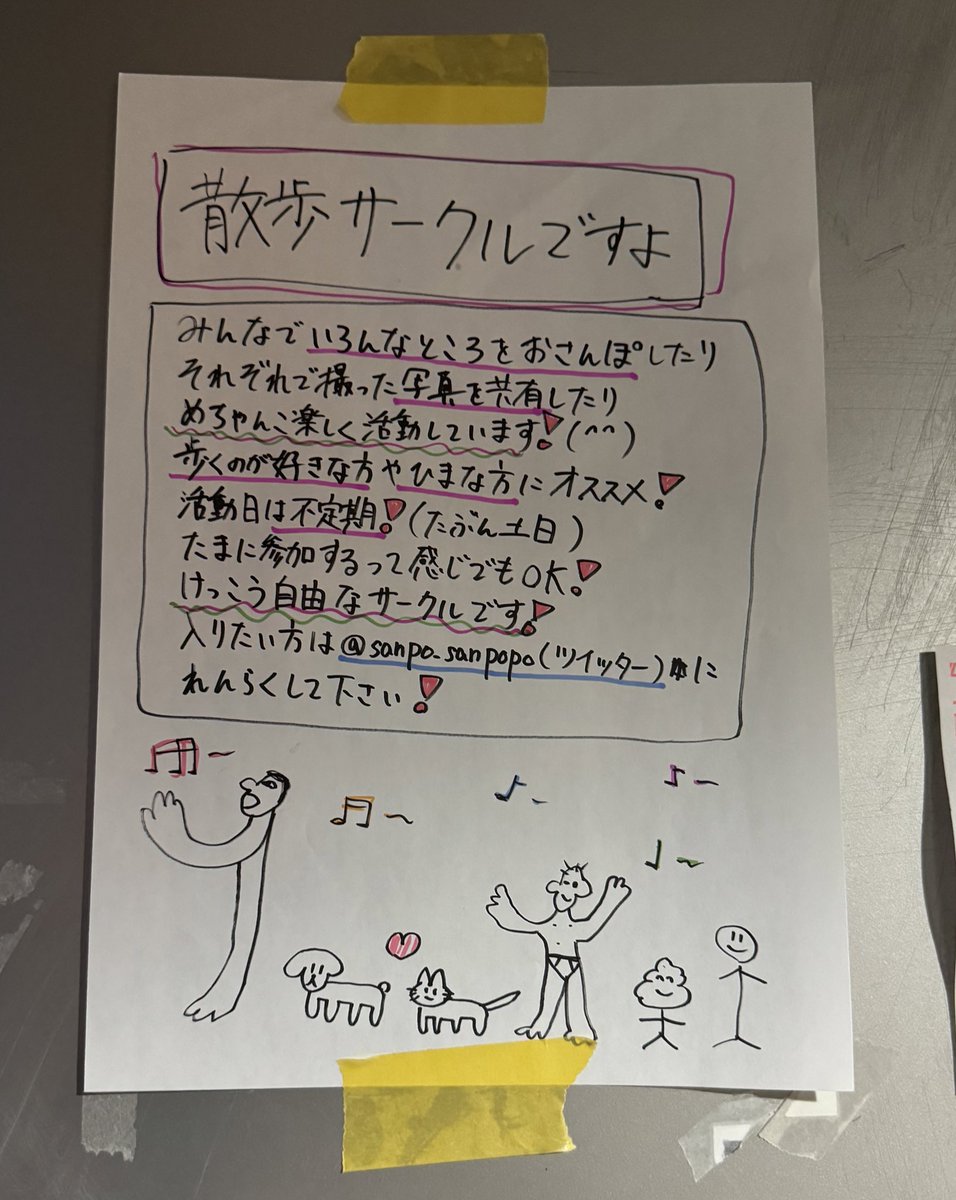 散歩サークルですよ
みんなでいろんなところをおさんぽしたり
それぞれで撮った写真を共有したり
めちゃんこ楽しく活動しています!(^^)
歩くのが好きな方やひまな方にオススメ!
活動日は不定期!(たぶん土日)
たまに参加するって感じでもOK!
けっこう自由なサークルです!
入りたい方は@sanpo_sanpopo(ツイッター)に
れんらくして下さい!